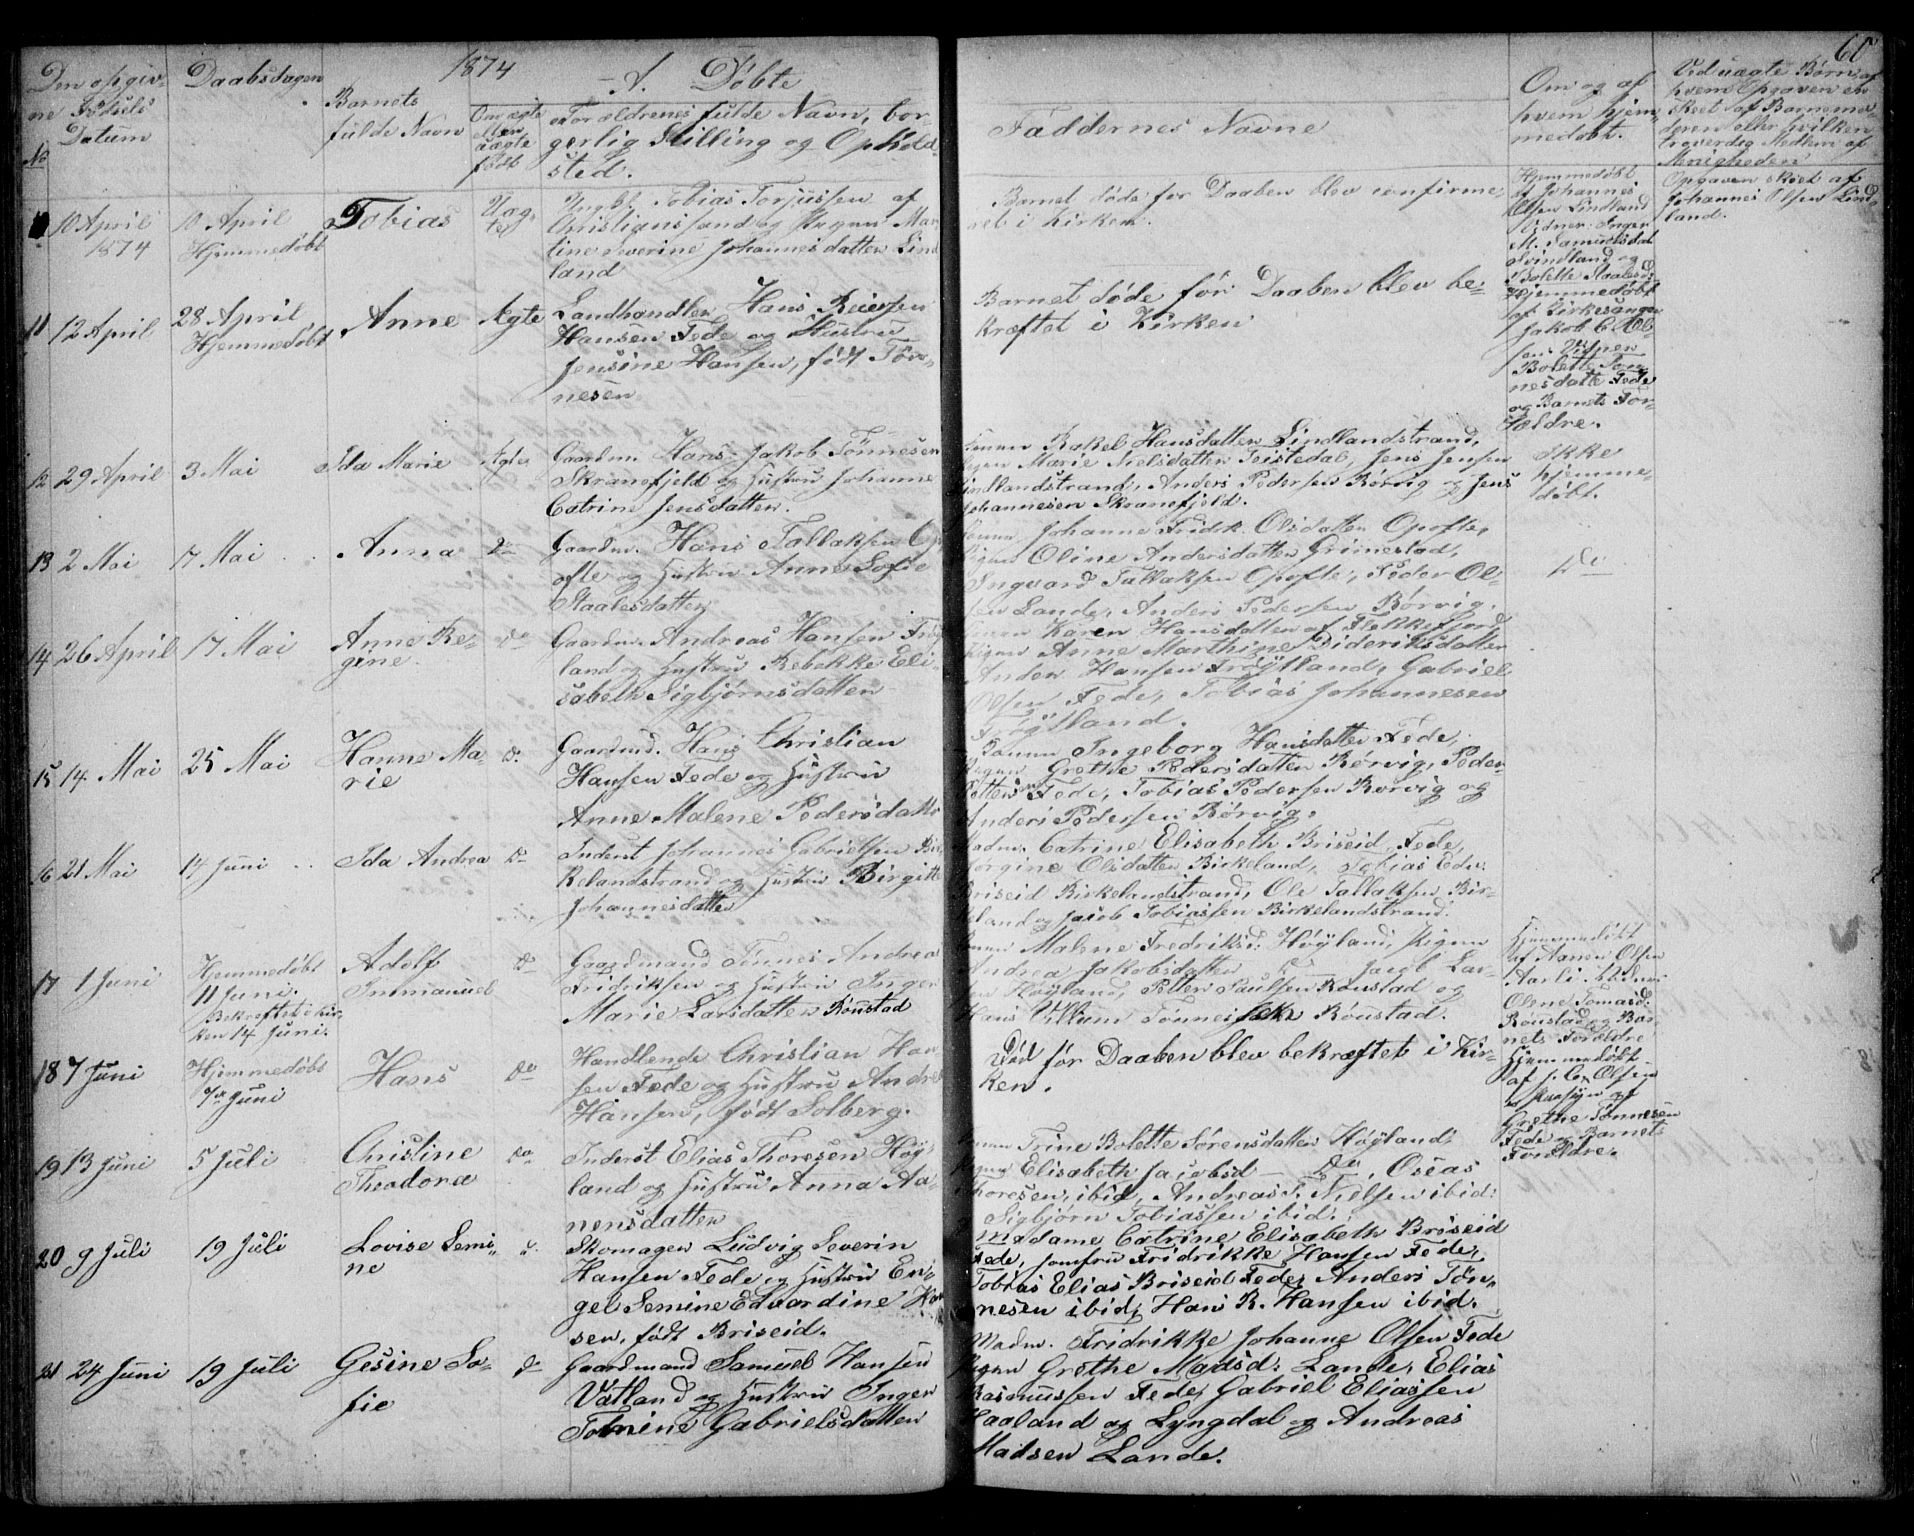 1874
A. Døbte
60
No
Den opgiv-
ne Fødsels
Datum
Daabsdagen
Barnets
fulde Navn
Om ægte
eller
uægte
født
Forældrenes fulde Navn, bor-
gerlig Stilling og Ophold-
sted.
Faddernes Navne
Om og af
hvem hjem-
medøbt.
Ved uægte Børn af
hvem Opgaven er
skeet af Barnemo-
deren eller hvilken
troværdig Medlem af
Menigheden
10 April
1874
10 April
Hjemmedøbt
Tobias
Uæg-
te
Tobias Torjussen af
Christianssand og Pigen Mar-
tine Severine Johannesdatter Lind
land
Barnet døde før Daaben blev confirme-
ret i Kirken.
Hjemmedøbt
af Johannes
Olsen Lindland
Vidner Inger
M. Samuelsdat
Svindland og
Bolette Staalesd:
Opgaven skeet af
Johannes Olsen Lind-
land.
11
12 April
28 April
Hjemmedøbt
Anne
Ægte
Landhandler Hans Reiersen
Hansen Fede og Hustru
Jensine Hansen, født Tøn-
nesen
Barnet døde før Daaben blev be-
kræftet i Kirken
Hjemmedøbt
af Kirkesanger
Jakob C. Ol-
sen. Vidner
Bolette Tøn-
nesdatte Fede
og Barnets For-
ældre.
12
29 April
3 Mai
Ida Marie
Ægte
Gaardm. Hans Jakob Tønnesen
Skranefjeld og Hustru Johanne
Catrine Jensdatter.
Rakel Hansdatter Lindlandstrand,
Marie Nielsdatter Teistedal, Jens Jensen
Lindlandstrand, Anders Pedersen Rørvig og Jens
Johannesen Skranefjeld.
Ikke
hjemme-
døbt.
13
2 Mai
17 Mai
Anna
Do
Gaardm. Hans Tallaksen Op
ofte og Hustru Anne Sofie
Staalesdatter
Johanne Fridk. Olsdatter Opofte,
Pigen Oline Andersdatter Grimestad,
Ingvard Tallaksen Opofte, Peder Ol-
sen Lande, Anders Pedersen Rørvig.
Do
14
26 April
17 Mai
Anne Re-
gine
Do
Gaardm. Andreas Hansen Frøy
land og Hustru Rebekke Eli-
sabeth Sigbjørnsdatter
Karen Hansdatter af Flekkefjord
Pigen Anne Marthine Dideriksdatter
Hansen Frøyland, Gabriel
Olsen Fede, Tobias Johannesen
Frøyland.
15
14 Mai
25 Mai
Hanne Ma-
rie
Do
Gaardmd. Hans Christian
Hansen Fede og Hustru
Anne Malene Pedersdatte
Ingeborg Hansdatter Fede,
Pigen Grethe Pedersdatter Rørvig, Peder
Fede, Tobias Pedersen Rørvig og
Anders Pedersen Rørvig.
16
21 Mai
14 Juni
Ida Andrea
Do
Inderst Johannes Gabrielsen Bir
kelandstrand og Hustru Birgitte
Johannesdatter
Madm. Catrine Elisabeth Briseid, Fede,
Jørgine Olsdatter Birkeland, Tobias Edv.
Briseid Birkelandstrand, Ole Tallaksen Bir-
keland og Jacob Tobiassen Birkelandstrand.
17
1 Juni
Hjemmedøbt
11 Juni.
Bekræftet i Kir-
ken 14 Juni.
Adolf
Immanuel
Do
Gaardmand Tønnes Andrea
Fridriksen og Hustru Inger
Marie Larsdatter Rønstad
Malene Fredriksd: Høyland, Pigen
Andrea Jakobsdatter Do Jacob Lar-
sen Høyland, Petter Paulsen Rønstad og
Hans Villum Tønnessen Rønstad.
Hjemmedøbt
af Aanen Olsen
Aarli. Vidner
Olene Tomasd:
Rønstad og Bar-
nets Forældre
18
7 Juni
Hjemmedøbt
7de Juni
Hans
Do
Handlende Christian Han
sen Fede og Hustru Andrea
Hansen, født Solberg.
Død før Daaben blev bekræftet i Kir-
ken.
Hjemmedøbt
af J. C. Olsen
Grethe Tønnesen
Fede og Barnets
Forældre.
19
13 Juni
5 Juli
Christine
Theodora
Do
Inderst Elias Thoresen Høy-
land og Hustru Anna Aa-
nensdatter
Trine Bolette Sørensdatter Høyland
Pigen Elisabeth Jacobsd — Do, Oseas
Thoresen, ibid, Andreas T. Nielsen ibid:
Sigbjørn Tobiassen ibid:
20
9 Juli
19 Juli
Lovise Semi-
ne
Do
Skomager Ludvig Severin
Hansen Fede og Hustru En-
gel Semine Edvardine Han
sen, født Briseid.
Madame Catrine Elisabeth Briseid
Fede, Jomfru Fridrikke Hansen Fede,
Tobias Elias Briseid Fede, Anders Tøn-
nesen ibid, Hans R. Hansen ibid.
21
24 Juni
19 Juli
Gesine So-
fie
Do
Gaardmand Samuel Hansen
Vatland og Hustru Inger
Tomine Gabrielsdatter
Madm. Fridrikke Johanne Olsen Fede
Pigen Grethe Madsd: Lande, Elias
Rasmussen Fede, Gabriel Eliassen
Haaland ag Lyngdal og Andreas
Madsen Lande.